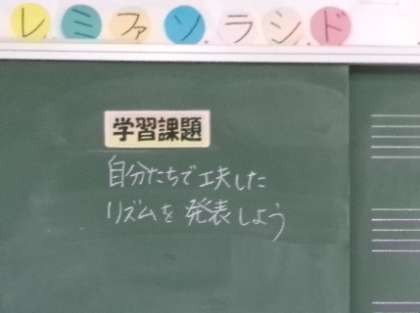 レミファソラシド
学習課題
自分たちで工夫した
リズムを発表しよう